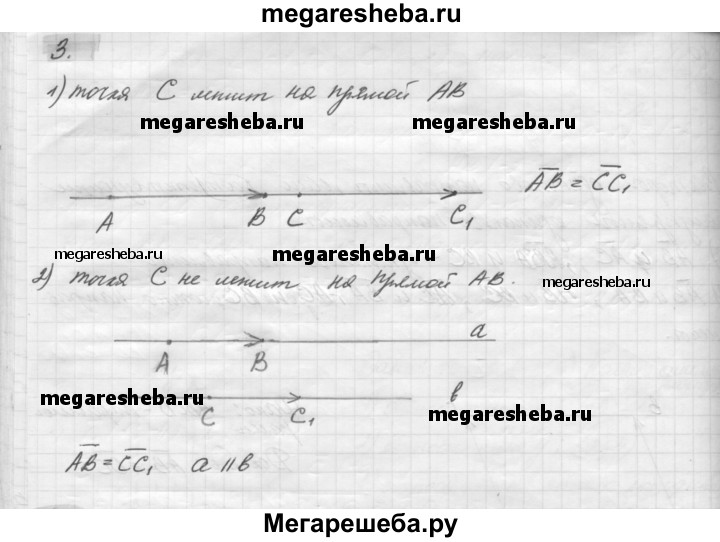 megaresheba.ru
3.
1) точка C лежит на прямой AB
megaresheba.ru megaresheba.ru
A B C C₁ A̅B̅ = C̅C̅₁
megaresheba.ru megaresheba.ru
2) точка C не лежит на прямой AB.
megaresheba.ru
a
A B
megaresheba.ru в
megaresheba.ru
C C₁
A̅B̅ = C̅C̅₁ a || в
Мегарешеба.ру